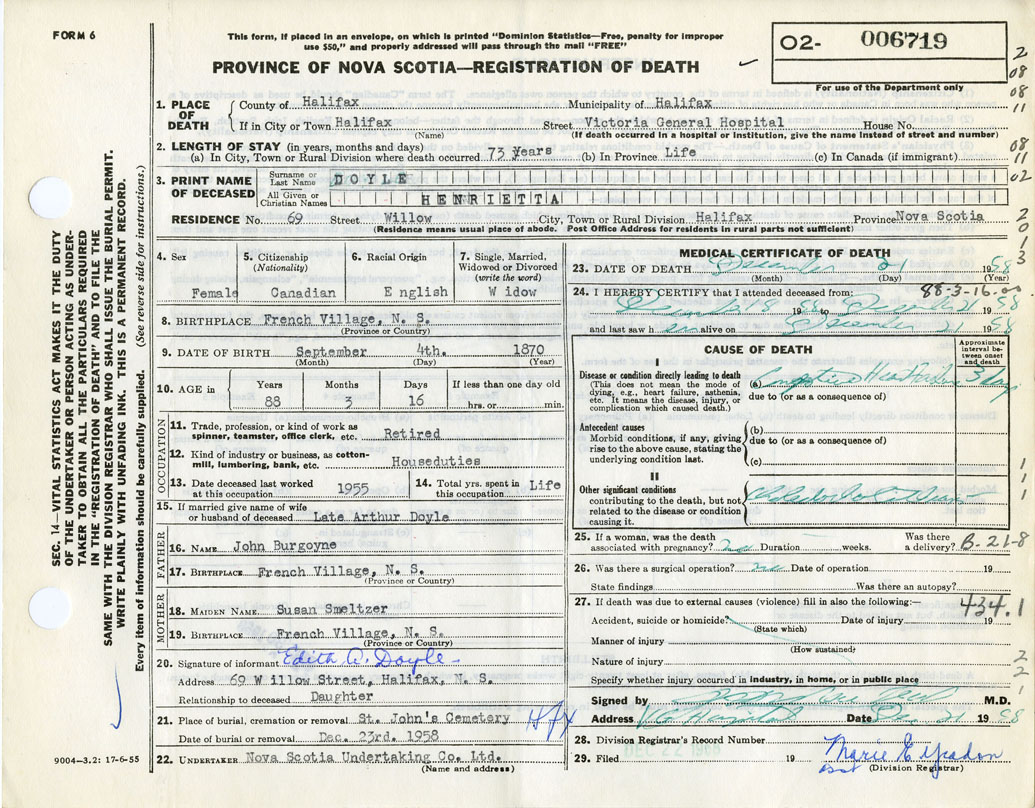 FORM 6
This form, if placed in an envelope, on which is printed "Dominion Statistics—Free, penalty for improper
use $50," and properly addressed will pass through the mail "FREE"
PROVINCE OF NOVA SCOTIA—REGISTRATION OF DEATH
02- 006719
For use of the Department only
1. PLACE OF DEATH
County of Halifax Municipality of Halifax
If in City or Town Halifax Street Victoria General Hospital House No.
(Name) (If death occurred in a hospital or institution, give the name instead of street and number)
2. LENGTH OF STAY (in years, months and days)
(a) In City, Town or Rural Division where death occurred 73 Years (b) In Province Life (c) In Canada (if immigrant)
3. PRINT NAME OF DECEASED
Surname or Last Name DOYLE
All Given or Christian Names HENRIETTA
RESIDENCE No. 69 Street Willow City, Town or Rural Division Halifax Province Nova Scotia
(Residence means usual place of abode. Post Office Address for residents in rural parts not sufficient)
4. Sex Female
5. Citizenship (Nationality) Canadian
6. Racial Origin English
7. Single, Married, Widowed or Divorced (write the word) Widow
8. BIRTHPLACE French Village, N. S.
(Province or Country)
9. DATE OF BIRTH September 4th. 1870
(Month) (Day) (Year)
10. AGE in Years 88 Months 3 Days 16 If less than one day old hrs. or min.
OCCUPATION
11. Trade, profession, or kind of work as spinner, teamster, office clerk, etc. Retired
12. Kind of industry or business, as cotton-mill, lumbering, bank, etc. Houseduties
13. Date deceased last worked at this occupation 1955
14. Total yrs. spent in this occupation Life
15. If married give name of wife or husband of deceased Late Arthur Doyle
FATHER
16. NAME John Burgoyne
17. BIRTHPLACE French Village, N. S.
(Province or Country)
MOTHER
18. MAIDEN NAME Susan Smeltzer
19. BIRTHPLACE French Village, N. S.
(Province or Country)
20. Signature of informant Edith A. Doyle
Address 69 Willow Street, Halifax, N. S.
Relationship to deceased Daughter
21. Place of burial, cremation or removal St. John's Cemetery Hfx
Date of burial or removal Dec. 23rd. 1958
22. UNDERTAKER Nova Scotia Undertaking Co. Ltd.
(Name and address)
MEDICAL CERTIFICATE OF DEATH
23. DATE OF DEATH December 21 1958
(Month) (Day) (Year)
88-3-16.00
24. I HEREBY CERTIFY that I attended deceased from:
December 18 1958 to December 21 1958
and last saw her alive on December 21 1958
CAUSE OF DEATH
Approximate interval between onset and death
I
Disease or condition directly leading to death
(This does not mean the mode of dying, e.g., heart failure, asthenia, etc. It means the disease, injury, or complication which caused death.)
(a) Congestive Heart Failure 3 days
due to (or as a consequence of)
Antecedent causes
Morbid conditions, if any, giving rise to the above cause, stating the underlying condition last.
(b)
due to (or as a consequence of)
(c)
II
Other significant conditions
contributing to the death, but not related to the disease or condition causing it.
25. If a woman, was the death associated with pregnancy? no Duration weeks. Was there a delivery?
B-21-8
26. Was there a surgical operation? no Date of operation 19
State findings Was there an autopsy?
27. If death was due to external causes (violence) fill in also the following:—
434.1
Accident, suicide or homicide? Date of injury 19
(State which)
Manner of injury
(How sustained)
Nature of injury
Specify whether injury occurred in industry, in home, or in public place
Signed by M.D.
Address V.G. Hospital Date Dec 21 1958
28. Division Registrar's Record Number
29. Filed DEC 22 1958 19
(Division Registrar)
SEC. 14—VITAL STATISTICS ACT MAKES IT THE DUTY
OF THE UNDERTAKER OR PERSON ACTING AS UNDER-
TAKER TO OBTAIN ALL THE PARTICULARS REQUIRED
IN THE "REGISTRATION OF DEATH" AND TO FILE THE
SAME WITH THE DIVISION REGISTRAR WHO SHALL ISSUE THE BURIAL PERMIT.
WRITE PLAINLY WITH UNFADING INK. THIS IS A PERMANENT RECORD.
Every item of information should be carefully supplied. (See reverse side for instructions.)
9004—3.2: 17-6-55
2
08
08
11
08
11
02
2
0
1
3
1
1
1
2
2
1